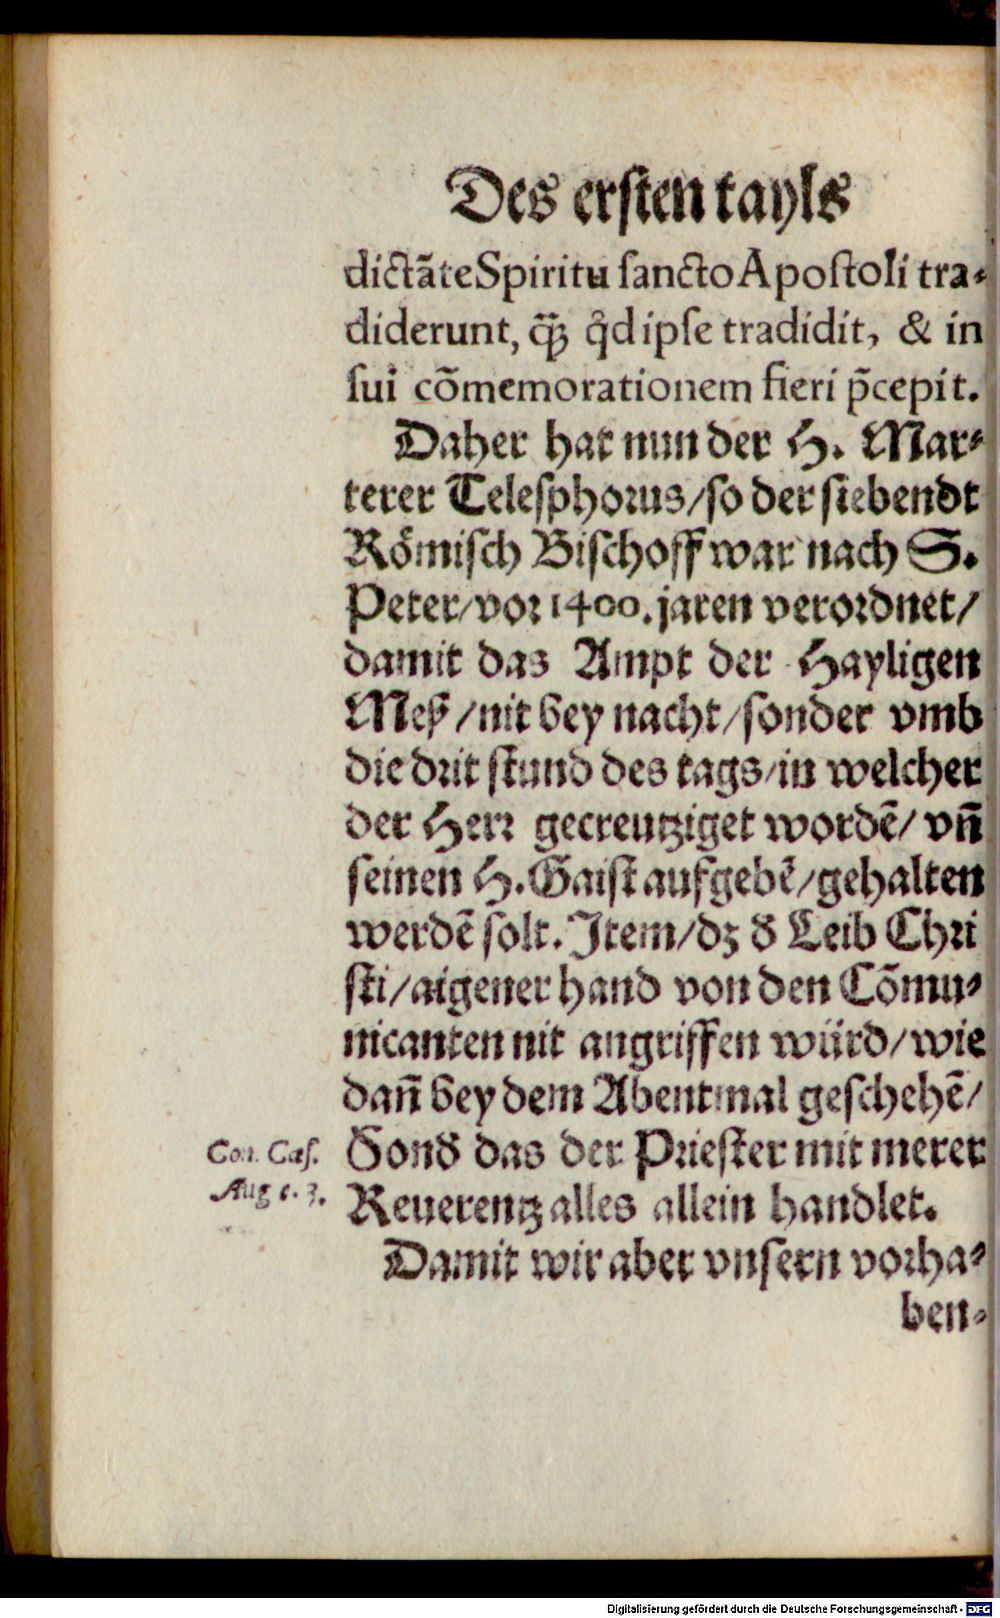 Des ersten tayls
dictãte Spiritu sancto Apostoli tra-
diderunt, q̃ꝫ q̊d ipse tradidit, & in
sui cõmemorationem fieri p̃cepit.
Daher hat nun der H. Mar-
terer Telesphorus/so der siebendt
Römisch Bischoff war nach S.
Peter/vor 1400. jaren verordnet/
damit das Ampt der Hayligen
Meß/nit bey nacht/sonder vmb
die drit stund des tags/in welcher
der Herr gecreutziget wordẽ/ vñ
seinen H. Gaist aufgebẽ/gehalten
werdẽ solt. Item/dz d̕ Leib Chri
sti/aigener hand von den Cõmu-
nicanten nit angriffen würd/wie
dañ bey dem Abentmal geschehẽ/
Sond̕ das der Priester mit merer
Reuerentz alles allein handlet.
Con. Cæs.
Aug c. 3.
Damit wir aber vnsern vorha-
ben-
Digitalisierung gefördert durch die Deutsche Forschungsgemeinschaft - DFG